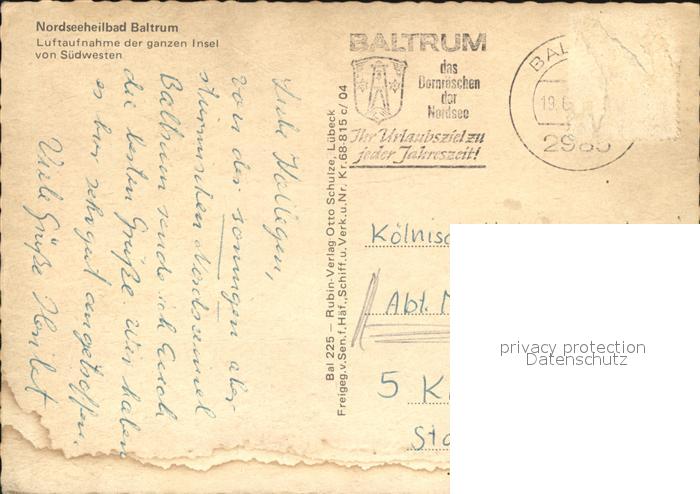 Nordseeheilbad Baltrum
Luftaufnahme der ganzen Insel
von Südwesten
BALTRUM
das
Dornröschen
der
Nordsee
Ihr Urlaubsziel zu
jeder Jahreszeit!
BAL
19.6
2985
Liebe Kollegen,
von der sonnigen aber
stürmischen Nordseeinsel
Baltrum sende ich Euch
die besten Grüße. Wir haben
es hier sehr gut angetroffen.
Viele Grüße
Bal 225 — Rubin-Verlag Otto Schulze, Lübeck
Freigeg.v.Sen.f.Häf.,Schiff.u.Verk.u.Nr. Kr.68-815 c/ 04
Kölnisc
Abt.
5 K
Sta
privacy protection
Datenschutz